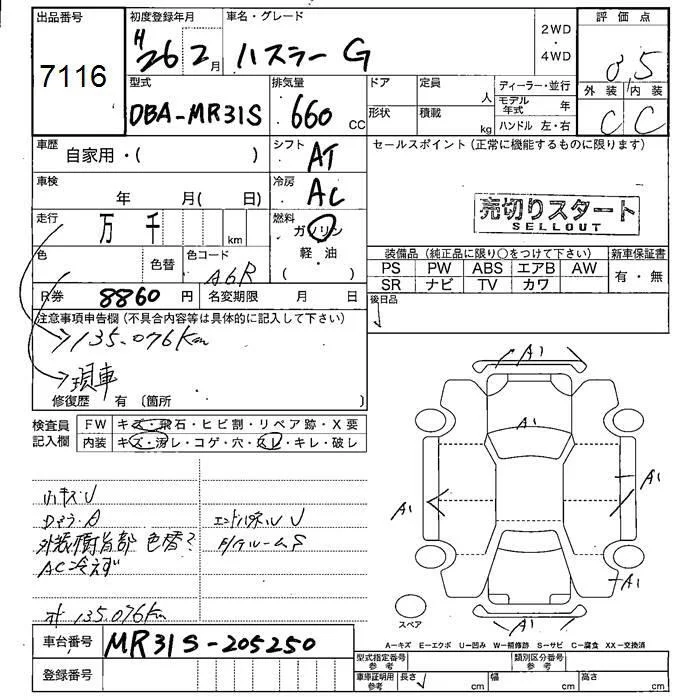 出品番号 7116
初度登録年月 H26年2月
車名・グレード ハスラー G
2WD ・ 4WD
評価点 3.5
外装 C 内装 C
型式 DBA-MR31S
排気量 660 CC
ドア 形状
定員 人
積載 kg
ディーラー・並行
モデル年式 年
ハンドル 左・右
車歴 自家用・( )
シフト AT
セールスポイント(正常に機能するものに限ります)
車検 年 月( 日)
冷房 AC
売切りスタート
SELLOUT
走行 万 千 km
燃料 ガソリン 軽・油
色 色替 色コード A6R
装備品(純正品に限り○をつけて下さい) 新車保証書
PS PW ABS エアB AW 有・無
SR ナビ TV カワ
R券 8860 円 名変期限 月 日
後日品
注意事項申告欄(不具合内容等は具体的に記入して下さい)
135.076Km
現車
修復歴 有 (箇所 )
検査員記入欄 FW キズ・飛石・ヒビ割・リペア跡・X要
内装 キズ・汚レ・コゲ・穴・スレ・キレ・破レ
小キズU
エンドパネルU
外装樹脂部 色替?
AC冷えず
135.076Km
A1
A1
A1
A1
A1
スペア
A1
A-キズ E-エクボ U-凹み W-補修跡 S-サビ C-腐食 XX-交換済
車台番号 MR31S-205250
登録番号
型式指定番号 参考 類別区分番号 参考
車庫証明用 参考 長さ cm 幅 cm 高さ cm